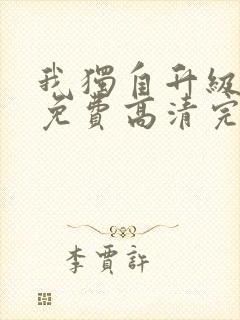 我獨自升級
免費高清完
李賈許